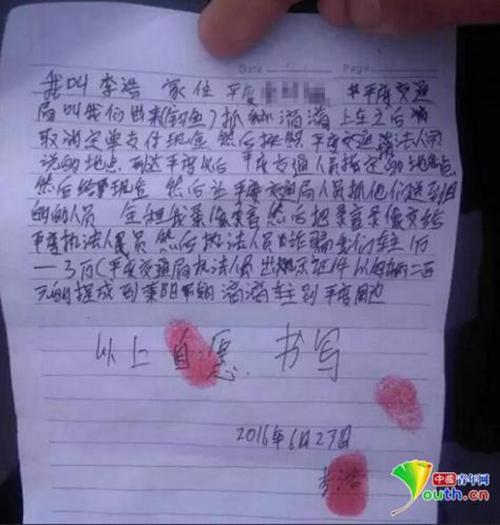 Date
我叫李浩 家住平度 平度交通
局叫我们出来(钓鱼)抓 滴滴 上车之后
取消定单支付现金 然后按照 平度交通 法人员
说的地点 到达平度以后 平度交通人员指定的地点
然后给现金 然后让平度交通局人员抓他们送到目
的的人员 全程我录像录音 然后把录音录像交给
平度执法人员 然后执法人员诈骗 们车主1万
一3万(平度交通局执法人员出 示证件以每辆二百
元的提成到莱阳 钓滴滴车主到平度周边
以上自愿 书写
2016年6月27日
李浩
中国青年网
Youth.cn